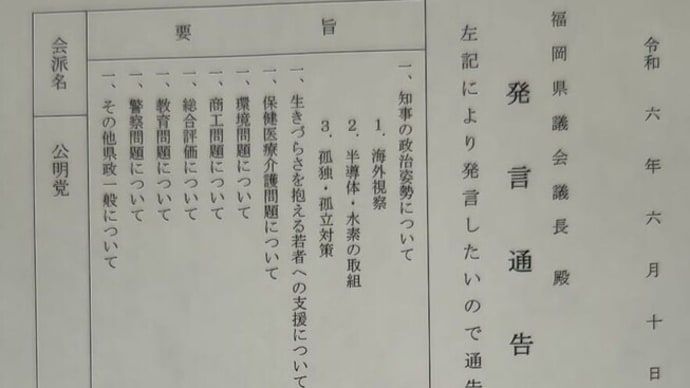 令和六年六月十日
福岡県議会議長殿
発言通告
左記により発言したいので通告
要旨
一、知事の政治姿勢について
1．海外視察
2．半導体・水素の取組
3．孤独・孤立対策
一、生きづらさを抱える若者への支援について
一、保健医療介護問題について
一、環境問題について
一、商工問題について
一、総合評価について
一、教育問題について
一、警察問題について
一、その他県政一般について
会派名
公明党